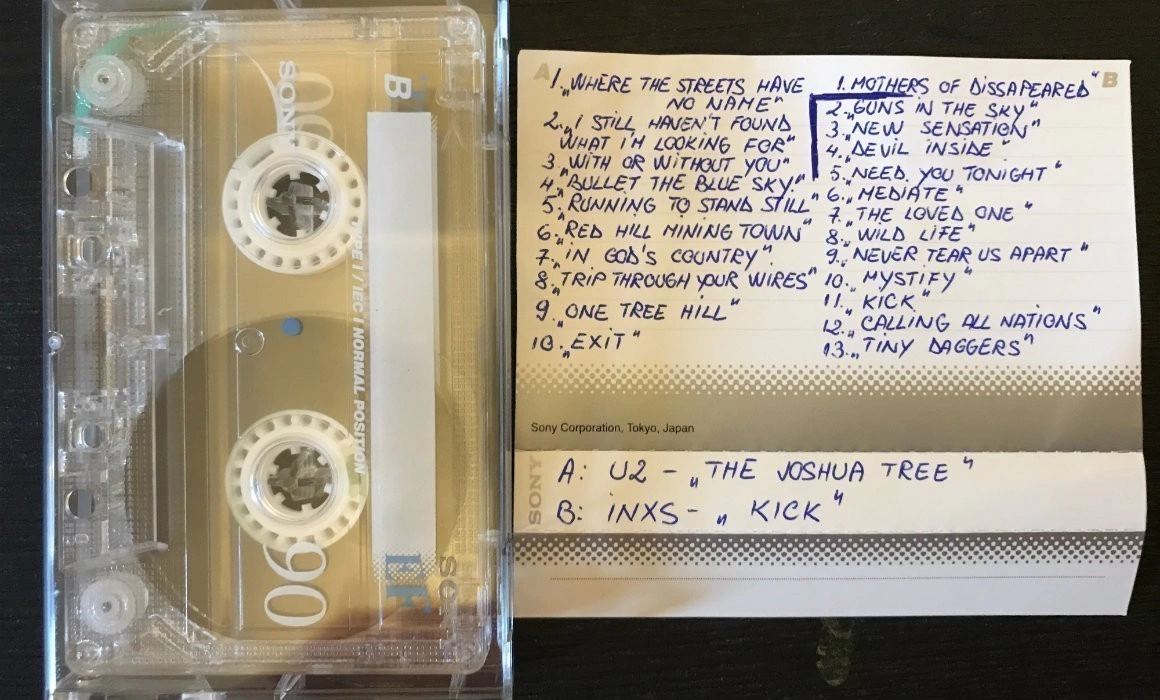 SONY
90
B
TYPE I / IEC I NORMAL POSITION
90
EF
SO
A
1. „WHERE THE STREETS HAVE
NO NAME"
2. „I STILL HAVEN'T FOUND
WHAT I'M LOOKING FOR"
3. „WITH OR WITHOUT YOU"
4. „BULLET THE BLUE SKY"
5. „RUNNING TO STAND STILL"
6. „RED HILL MINING TOWN"
7. „IN GOD'S COUNTRY"
8. „TRIP THROUGH YOUR WIRES"
9. „ONE TREE HILL"
10. „EXIT"
B
1. MOTHERS OF DISSAPEARED"
2. „GUNS IN THE SKY"
3. „NEW SENSATION"
4. „DEVIL INSIDE"
5. „NEED YOU TONIGHT"
6. „MEDIATE"
7. „THE LOVED ONE"
8. „WILD LIFE"
9. „NEVER TEAR US APART"
10. „MYSTIFY"
11. „KICK"
12. „CALLING ALL NATIONS"
13. „TINY DAGGERS"
Sony Corporation, Tokyo, Japan
SONY
A: U2 - „THE JOSHUA TREE"
B: INXS - „KICK"